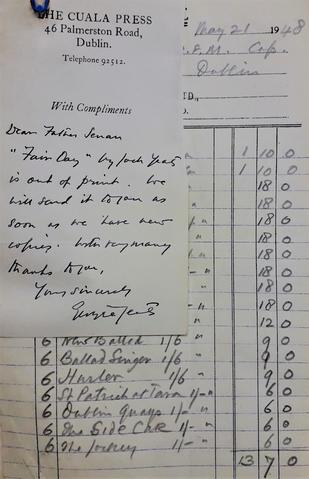 THE CUALA PRESS
46 Palmerston Road,
Dublin.
Telephone 92512.
With Compliments
Dear Father Senan
"Fair Day" by Jack Yeats
is out of print. We
will send it to you as
soon as we have new
copies. With very many
thanks to you,
Yours sincerely
George Yeats
May 21 1948
Cap.
Dublin
TD.,
1 10 0
1 10 0
18 0
18 0
18 0
18 0
18 0
18 0
18 0
18 0
12 0
6 New Ballad 1/6 " 9 0
6 Ballad Singer 1/6 " 9 0
6 Hurler 1/6 " 9 0
6 St Patrick at Tara 1/- " 6 0
6 Dublin Quays 1/- " 6 0
6 The Side Car 1/- " 6 0
6 The Jockey 1/- " 6 0
13 7 0